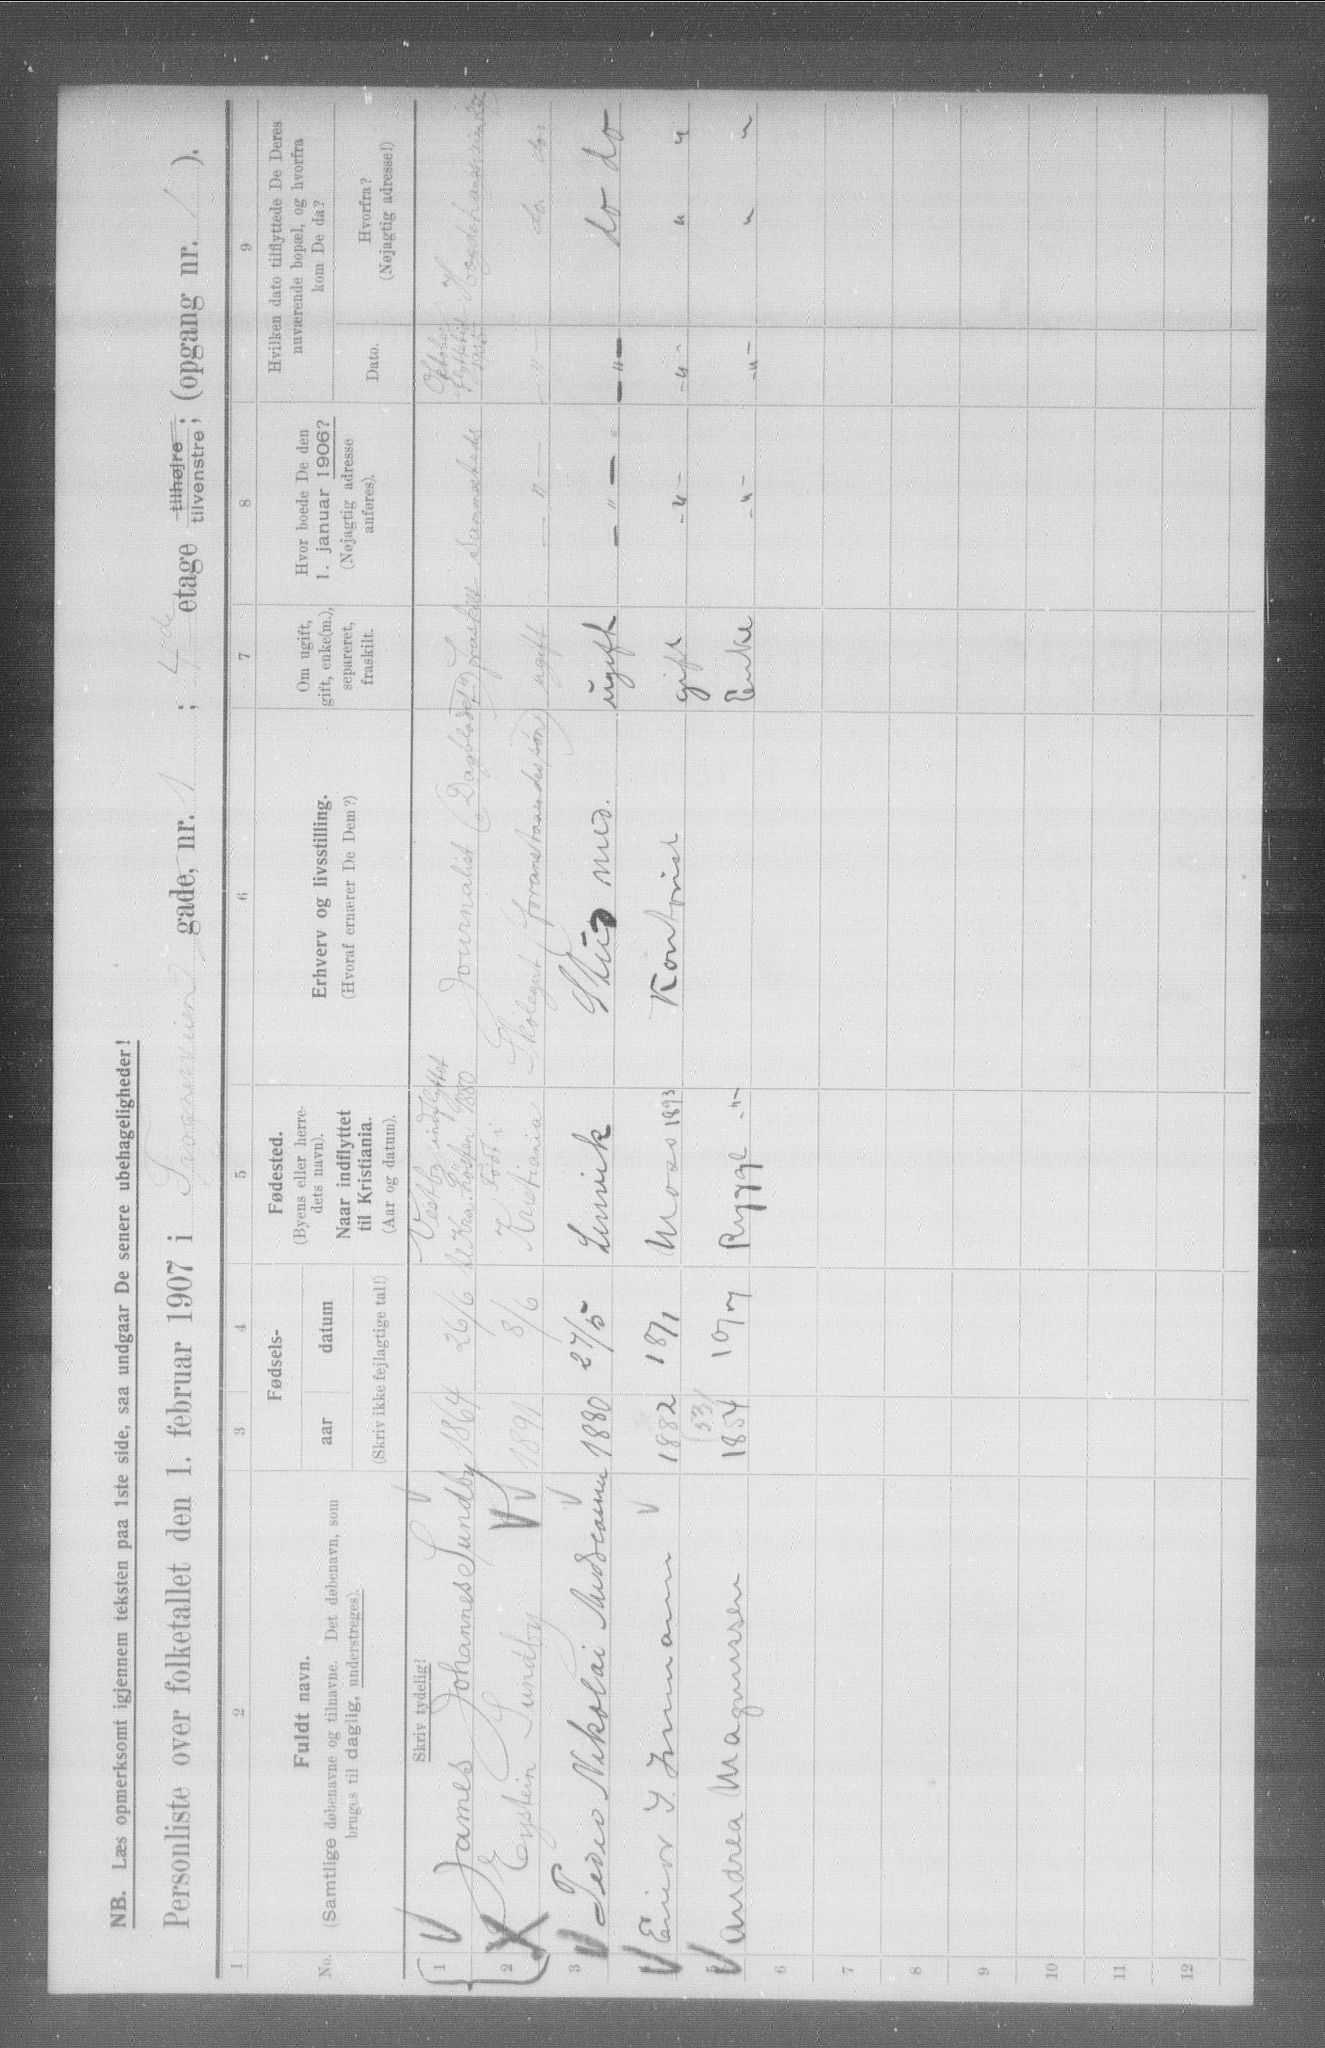 NB. Læs opmerksomt igjennem teksten paa 1ste side, saa undgaar De senere ubehageligheder!
Personliste over folketallet den 1. februar 1907 i Frognerveien gade, nr. 1 ; 4de etage tilhøjre ; tilvenstre ; (opgang nr. 1 ).
1 2 3 4 5 6 7 8 9
No.
Fuldt navn.
(Samtlige døbenavne og tilnavne. Det døbenavn, som
bruges til daglig, understreges).
Fødsels-
aar datum
(Skriv ikke fejlagtige tal!)
Fødested.
(Byens eller herre-
dets navn).
Naar indflyttet
til Kristiania.
(Aar og datum).
Erhverv og livsstilling.
(Hvoraf ernærer De Dem?)
Om ugift,
gift, enke(m.),
separeret,
fraskilt.
Hvor boede De den
1. januar 1906?
(Nøjagtig adresse
anføres).
Hvilken dato tilflyttede De Deres
nuværende bopæl, og hvorfra
kom De da?
Dato.
Hvorfra?
(Nøjagtig adresse!)
Skriv tydelig!
1 James Johannes Sundby 1864 26/6 Vestby indflyttet til Kra. Høsten 1880 Journalist ("Dagbladet") fraskilt Sammesteds Oktober flyttetid 1905
2 Eystein Sundby 1891 8/6 Født i Kristiania Skolegut (foranstaaendes søn) ugift — " — — " do do
3 Nikolai 1880 27/5 Stud med. ugift — " — " — " — do do
4 Einar 1882 18/1 Moss 1893 Kontorist gift - " - - " - " "
5 Andrea Magnussen (53) 1854 Rygge - " - Enke - " - - " - " "
6
7
8
9
10
11
12